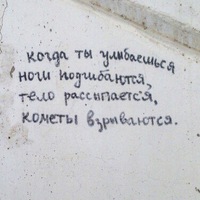 когда ты улыбаешься
ноги подгибаются,
тело рассыпается,
кометы взрываются.